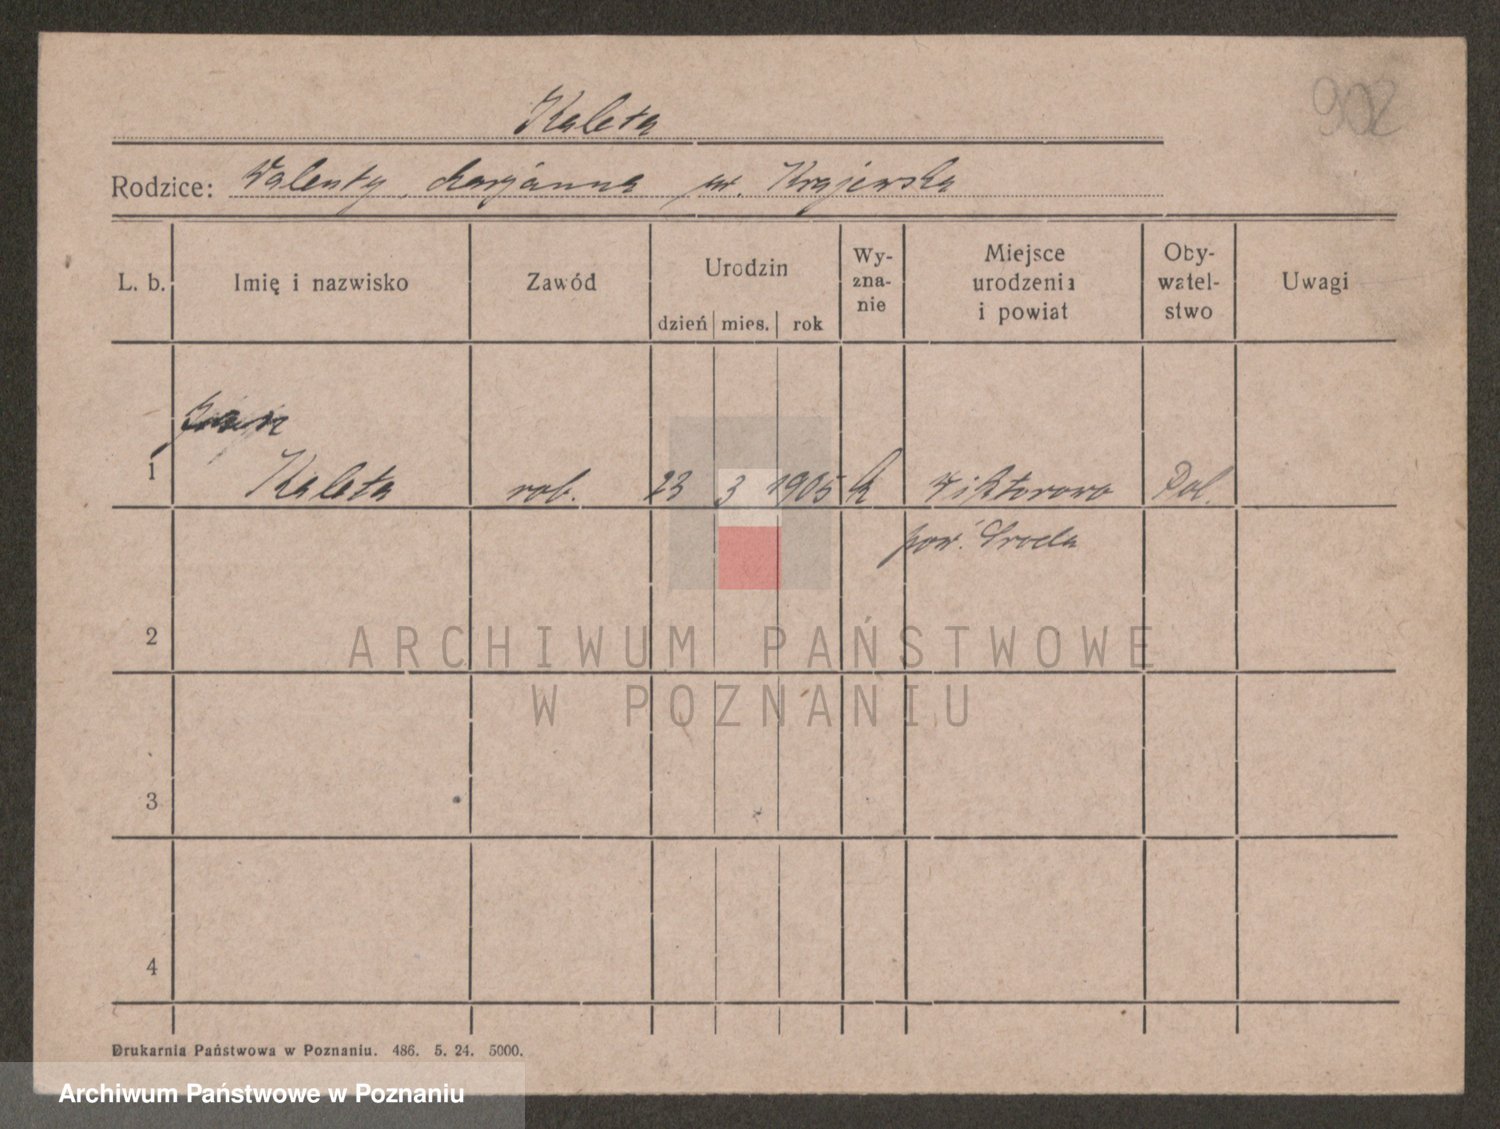 902
Kaleta
Rodzice: Walenty, Marjanna ur. Krajewska
L. b. Imię i nazwisko Zawód Urodzin dzień mies. rok Wy-zna-nie Miejsce urodzenia i powiat Oby-watel-stwo Uwagi
Jan
1 Kaleta rob. 23 3 1905 k Wiktorowo Pol.
pow. Środa
2
ARCHIWUM PAŃSTWOWE
W POZNANIU
3
4
Drukarnia Państwowa w Poznaniu. 486. 5. 24. 5000.
Archiwum Państwowe w Poznaniu